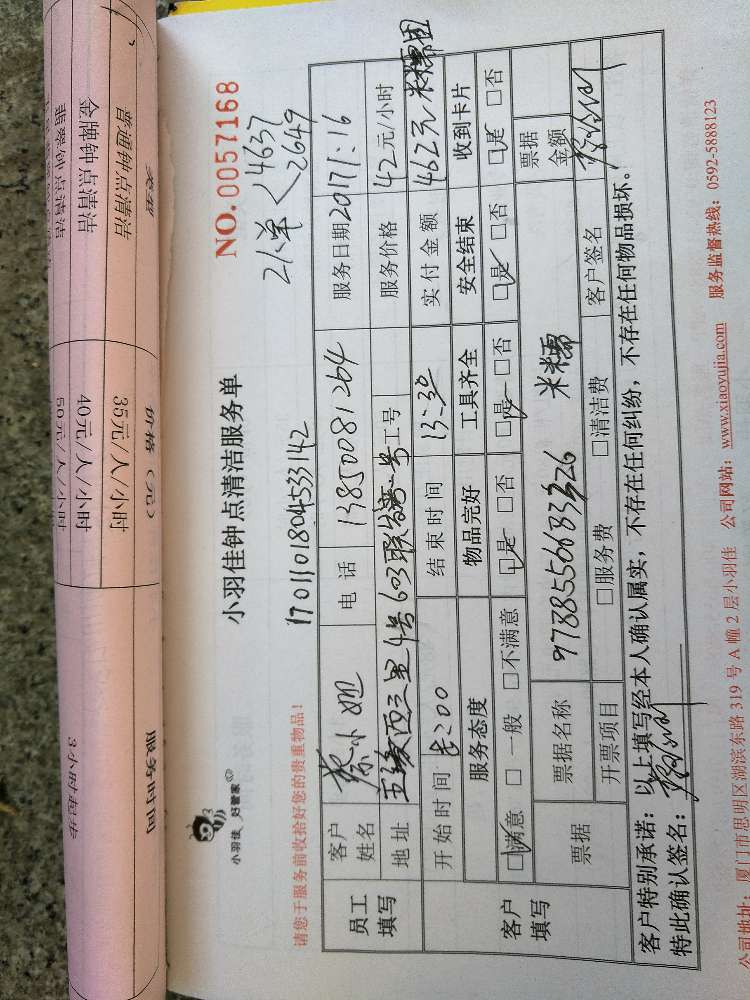 小羽佳钟点清洁服务单
NO.0057168
小羽佳 好管家
请您于服务前收拾好您的贵重物品！
1701101804533142
2人单
4637
2649
员工填写
客户姓名 蔡小姐 电话 13850081264 服务日期 2017.1.16
地址 4号603 工号 服务价格 42元/小时
开始时间 结束时间 13:30 实付金额 462元 米糯
客户填写
服务态度 物品完好 工具齐全 安全结束 收到卡片
□满意 □一般 □不满意 □是 □否 □是 □否 □是 □否 □是 □否
票据 票据名称 米糯 票据金额
开票项目 □服务费 □清洁费 客户签名
客户特别承诺：以上填写经本人确认属实，不存在任何纠纷，不存在任何物品损坏。
特此确认签名：
公司地址：厦门市思明区湖滨东路 319 号 A 幢 2 层小羽佳 公司网站：www.xiaoyujia.com 服务监督热线：0592-5888123
类型 价格（元） 服务时间
普通钟点清洁 35元/人/小时
金牌钟点清洁 40元/人/小时
翡翠钟点清洁 50元/人/小时
3小时起步